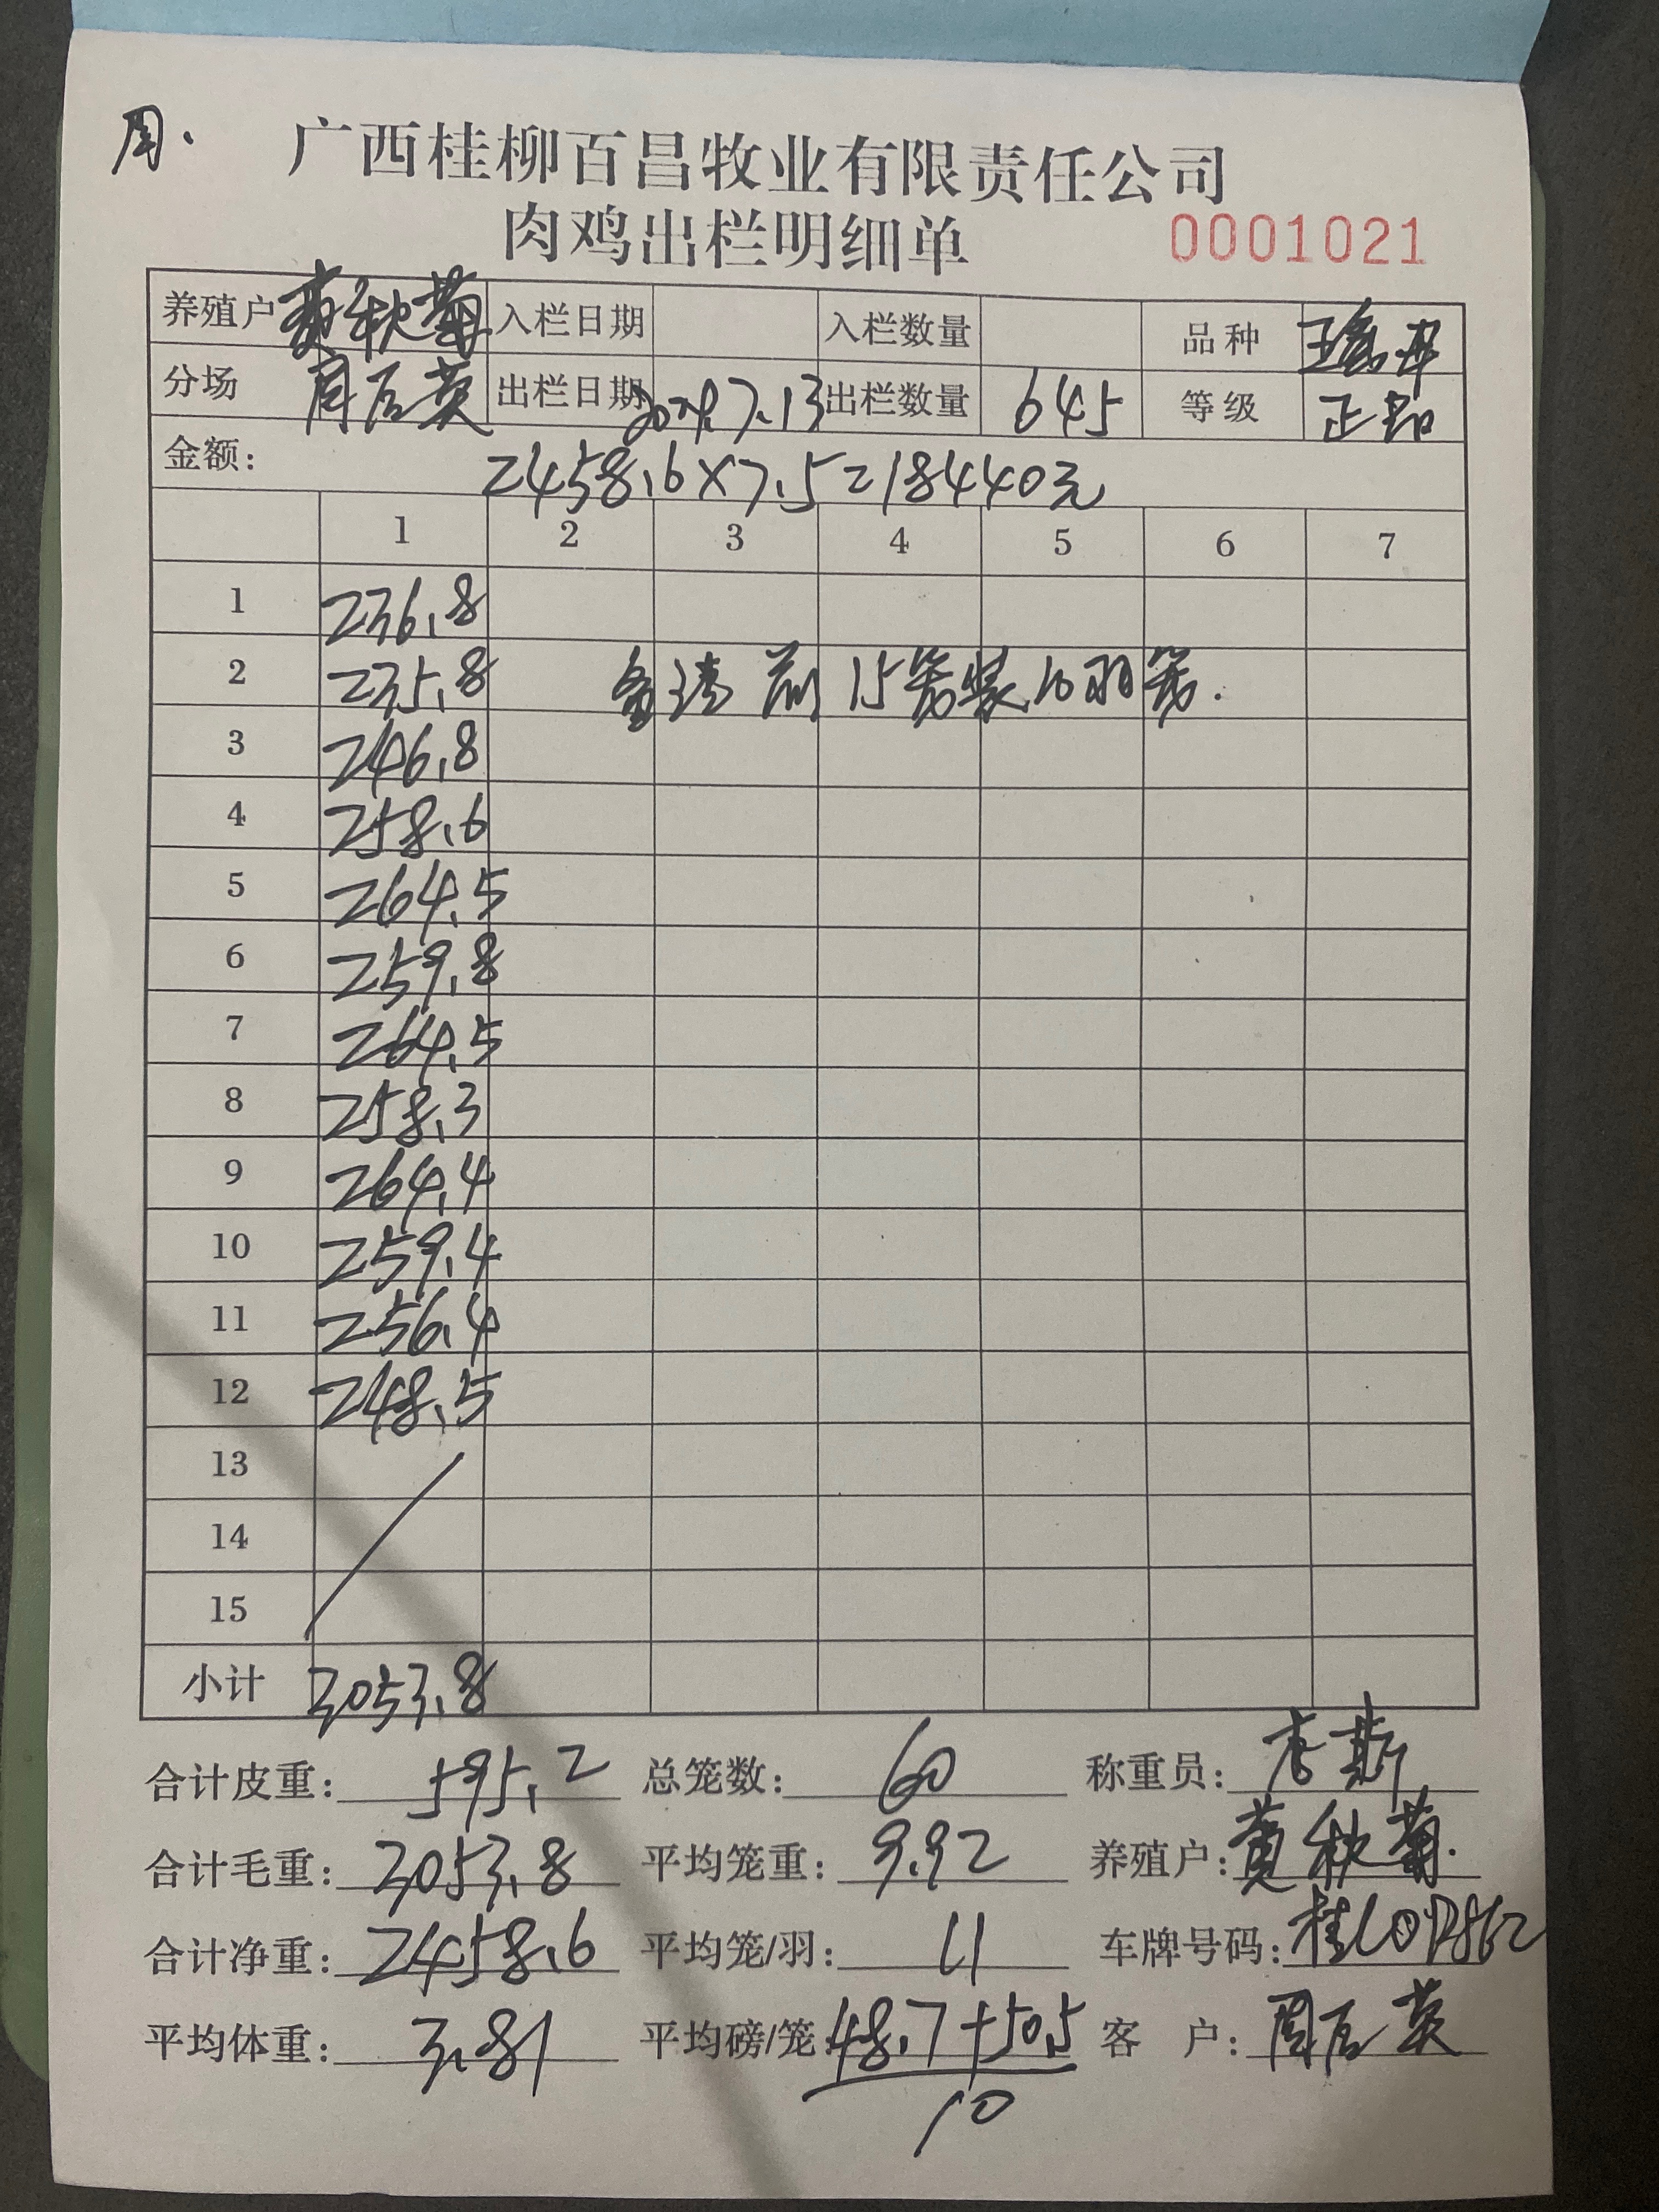 周.
广西桂柳百昌牧业有限责任公司
肉鸡出栏明细单 0001021
养殖户 黄秋菊 入栏日期 入栏数量 品种
分场 周后英 出栏日期 7.13 出栏数量 645 等级 正品
金额: 2458.6×7.5=18440元
1 2 3 4 5 6 7
1 236.8
2 235.8 备注 前15笼装10羽笼.
3 246.8
4 258.6
5 264.5
6 259.8
7 264.5
8 258.3
9 264.4
10 259.4
11 256.4
12 248.5
13
14
15
小计 3053.8
合计皮重: 595.2 总笼数: 60 称重员:
合计毛重: 3053.8 平均笼重: 9.92 养殖户: 黄秋菊.
合计净重: 2458.6 平均笼/羽: 11 车牌号码:
平均体重: 3.81 平均磅/笼: 48.7+50.5 客 户: 周后英
10